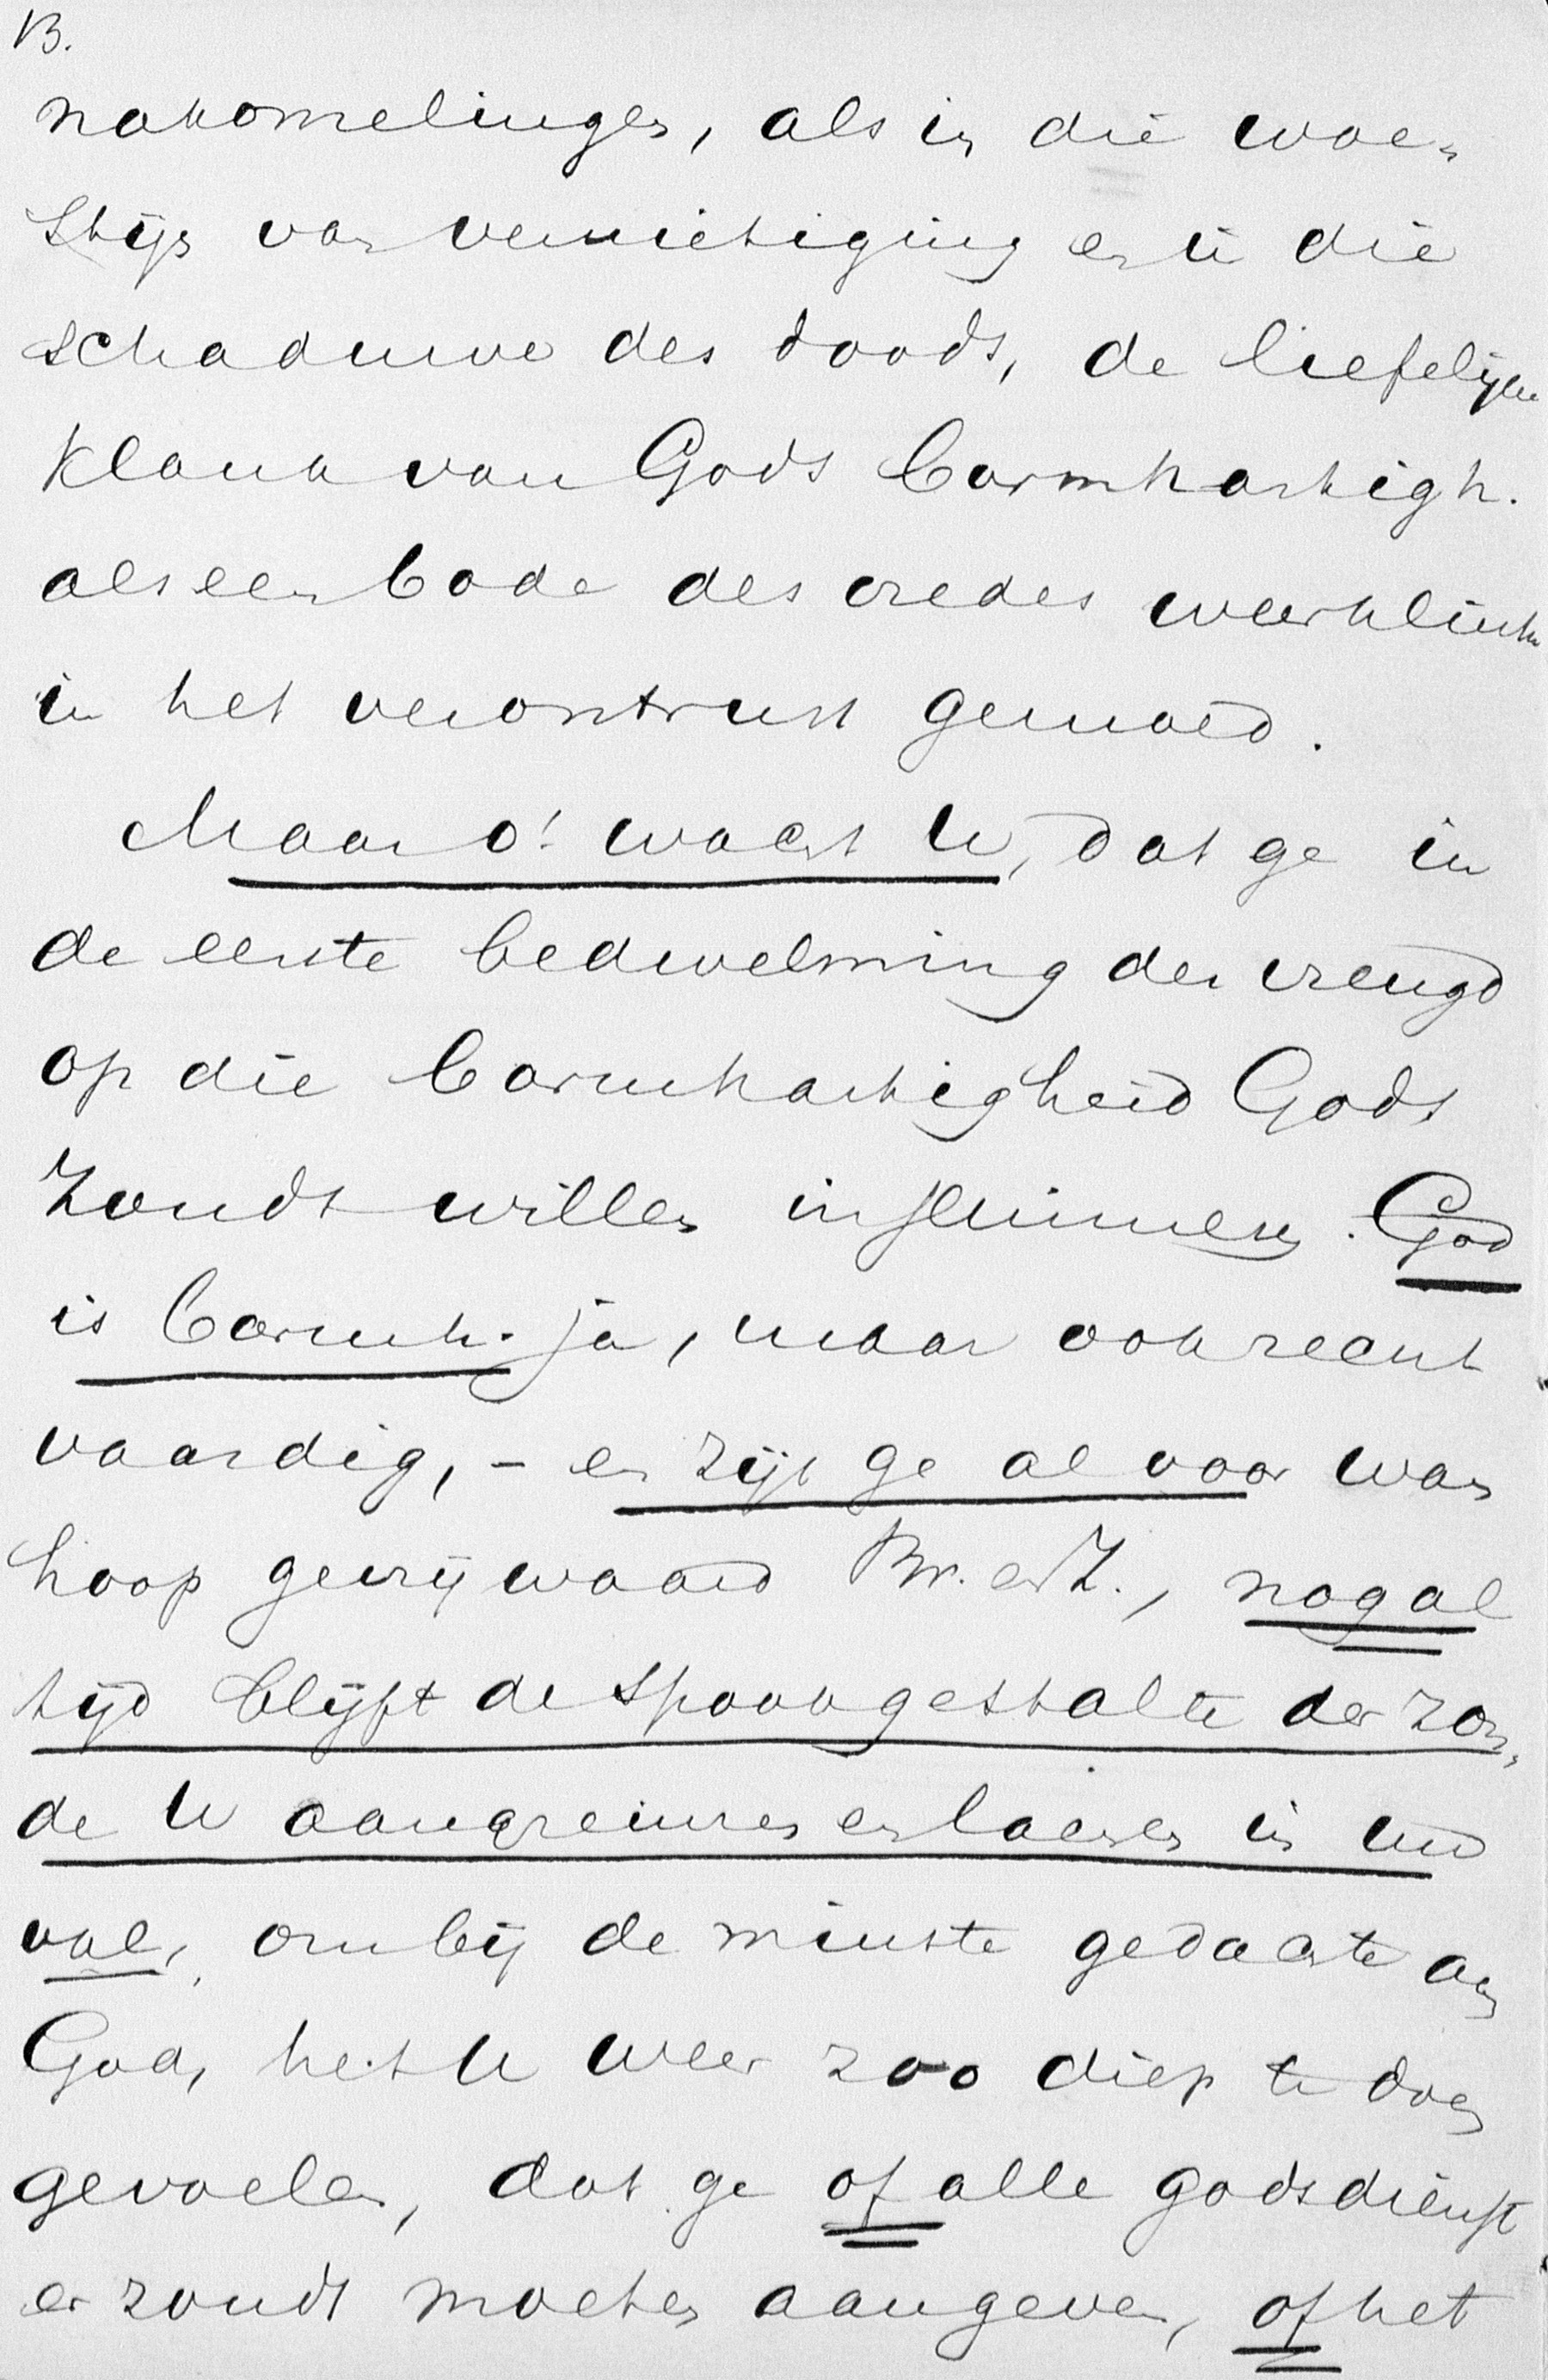 13.
nakomelingen, als in die woe-
stijn van vernietiging en in die
schaduwe des doods, de liefelijke
klank van Gods barmhartigh.
als een bode des vredes weerklinke
in het verontrust gemoed.
Maar o! wacht U, dat ge in
de eerste bedwelming der vreugd
op die barmhartigheid Gods
zoudt willen insluimeren. God
is barmh. ja, maar ook recht
vaardig, - en zijt ge al voor wan
hoop gevrijwaard Br. en Z., nog al
tijd blijft de spookgestalte der zon-
de U aangrijnzen en lachen in uw
val, om bij de minste gedachte aan
God, het U weer zoo diep te doen
gevoelen, dat ge of alle godsdienst
er zoudt moeten aangeven, of het